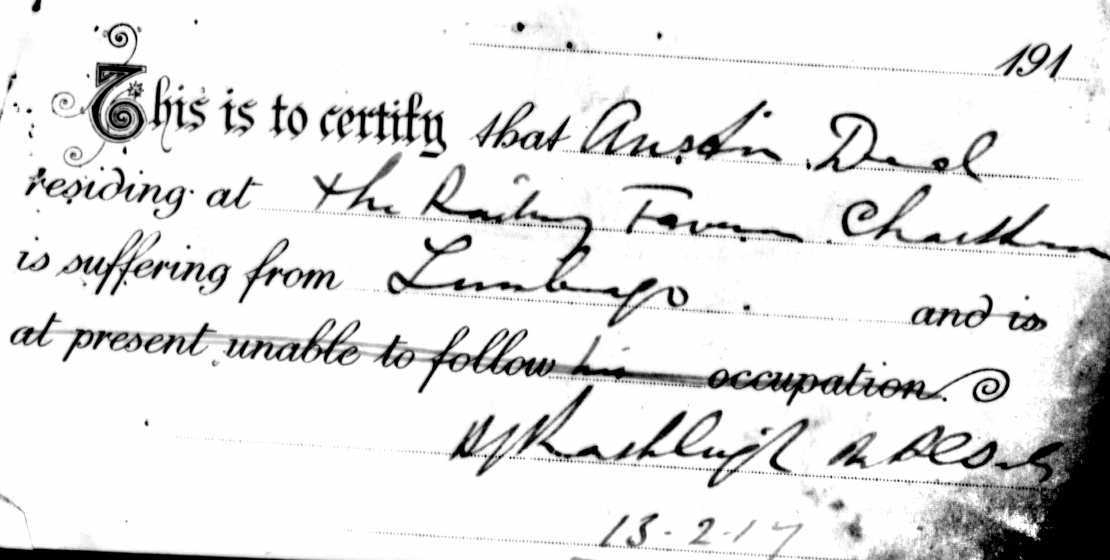 191
This is to certify that Austin Deal
residing at the Railway Tavern
is suffering from Lumbago. and is
at present unable to follow his occupation.
Rashleigh
13-2-17